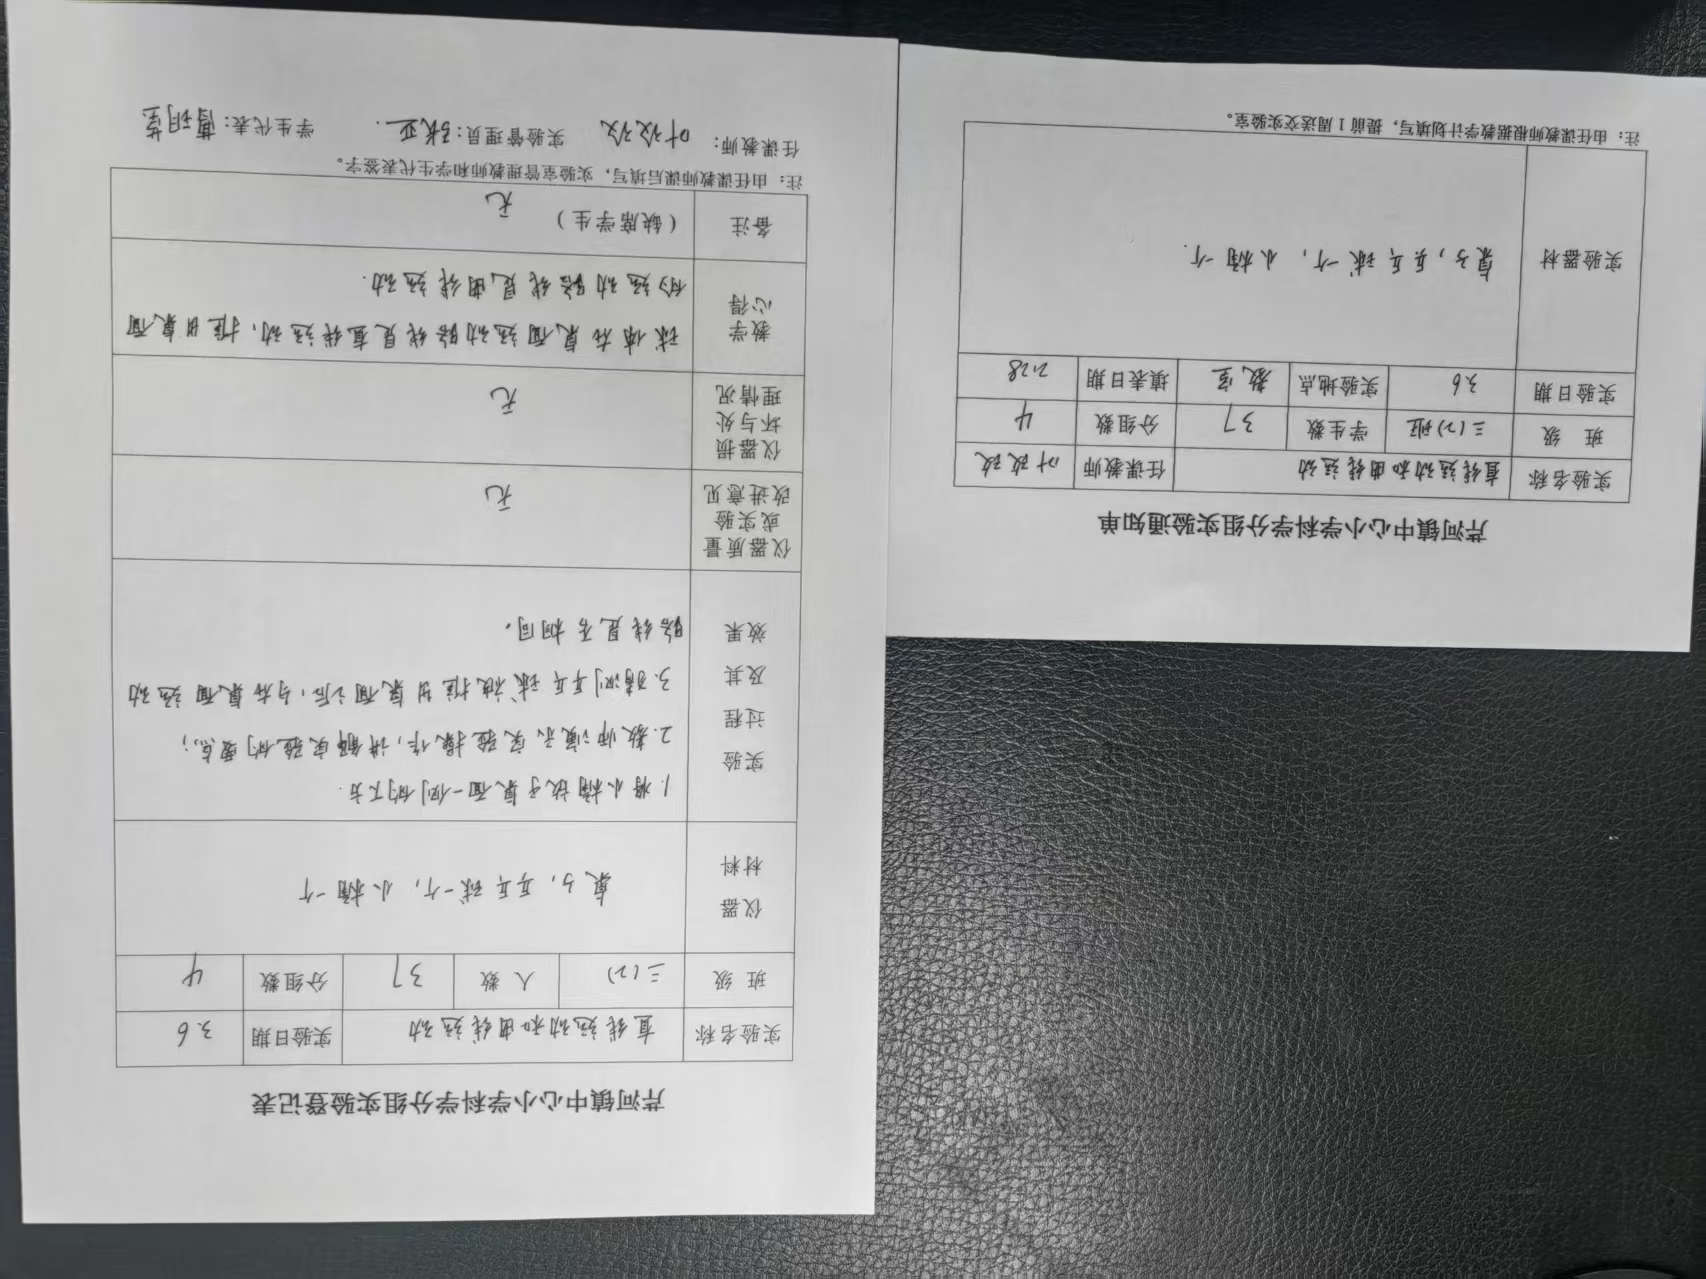 芹河镇中心小学科学分组实验通知单
实验名称 直线运动和曲线运动 任课教师 叶改改
班 级 三(2)班 学生数 37 分组数 4
实验日期 3.6 实验地点 教室 填表日期 2.28
实验器材 桌子,乒乓球一个,小桶一个.
注:由任课教师根据教学计划填写,提前1周送交实验室。
芹河镇中心小学科学分组实验登记表
实验名称 直线运动和曲线运动 实验日期 3.6
班 级 三(2) 人 数 37 分组数 4
仪器
材料
桌子,乒乓球一个,小桶一个
实验
过程
及其
效果
1.将小桶放于桌面一侧的下方.
2.教师演示实验操作,讲解实验的要点;
3.猜测乒乓球被推出桌面之后,与在桌面运动
路线是否相同。
仪器质量
或实验
改进意见
无
仪器损
坏与处
理情况
无
教学
心得
球体在桌面运动路线是直线运动,推出桌面
的运动路线是曲线运动.
备注 (缺席学生)
无
注:由任课教师课后填写,实验室管理教师和学生代表签字。
任课教师: 叶改改 实验管理员: 张亚 学生代表: